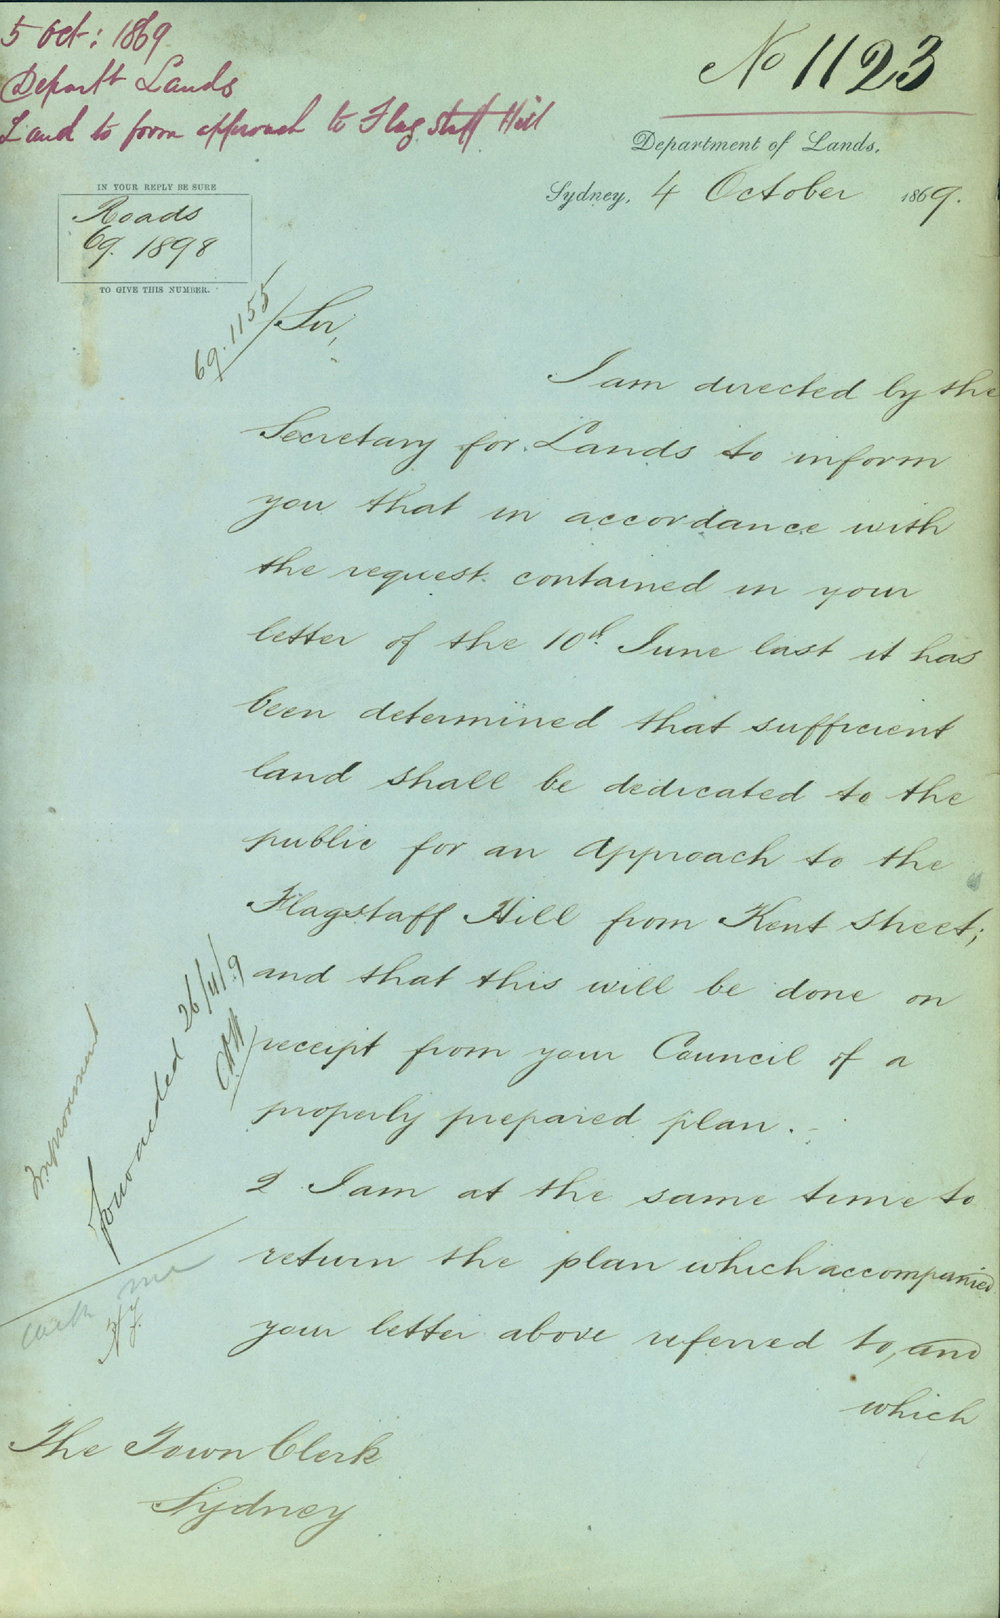 5 Oct: 1869
Departt Lands
Land to form approach to Flag staff Hill
No 1123
Department of Lands,
Sydney, 4 October 1869.
IN YOUR REPLY BE SURE
Roads
69. 1898
TO GIVE THIS NUMBER.
69.1155
Sir,
I am directed by the
Secretary for Lands to inform
you that in accordance with
the request contained in your
letter of the 10th. June last it has
been determined that sufficient
land shall be dedicated to the
public for an Approach to the
Flagstaff Hill from Kent Street;
and that this will be done on
receipt from your Council of a
properly prepared plan.
2 I am at the same time to
return the plan which accompanied
your letter above referred to, and
which
Improvement
forwarded 26/11/9
with me
The Town Clerk
Sydney